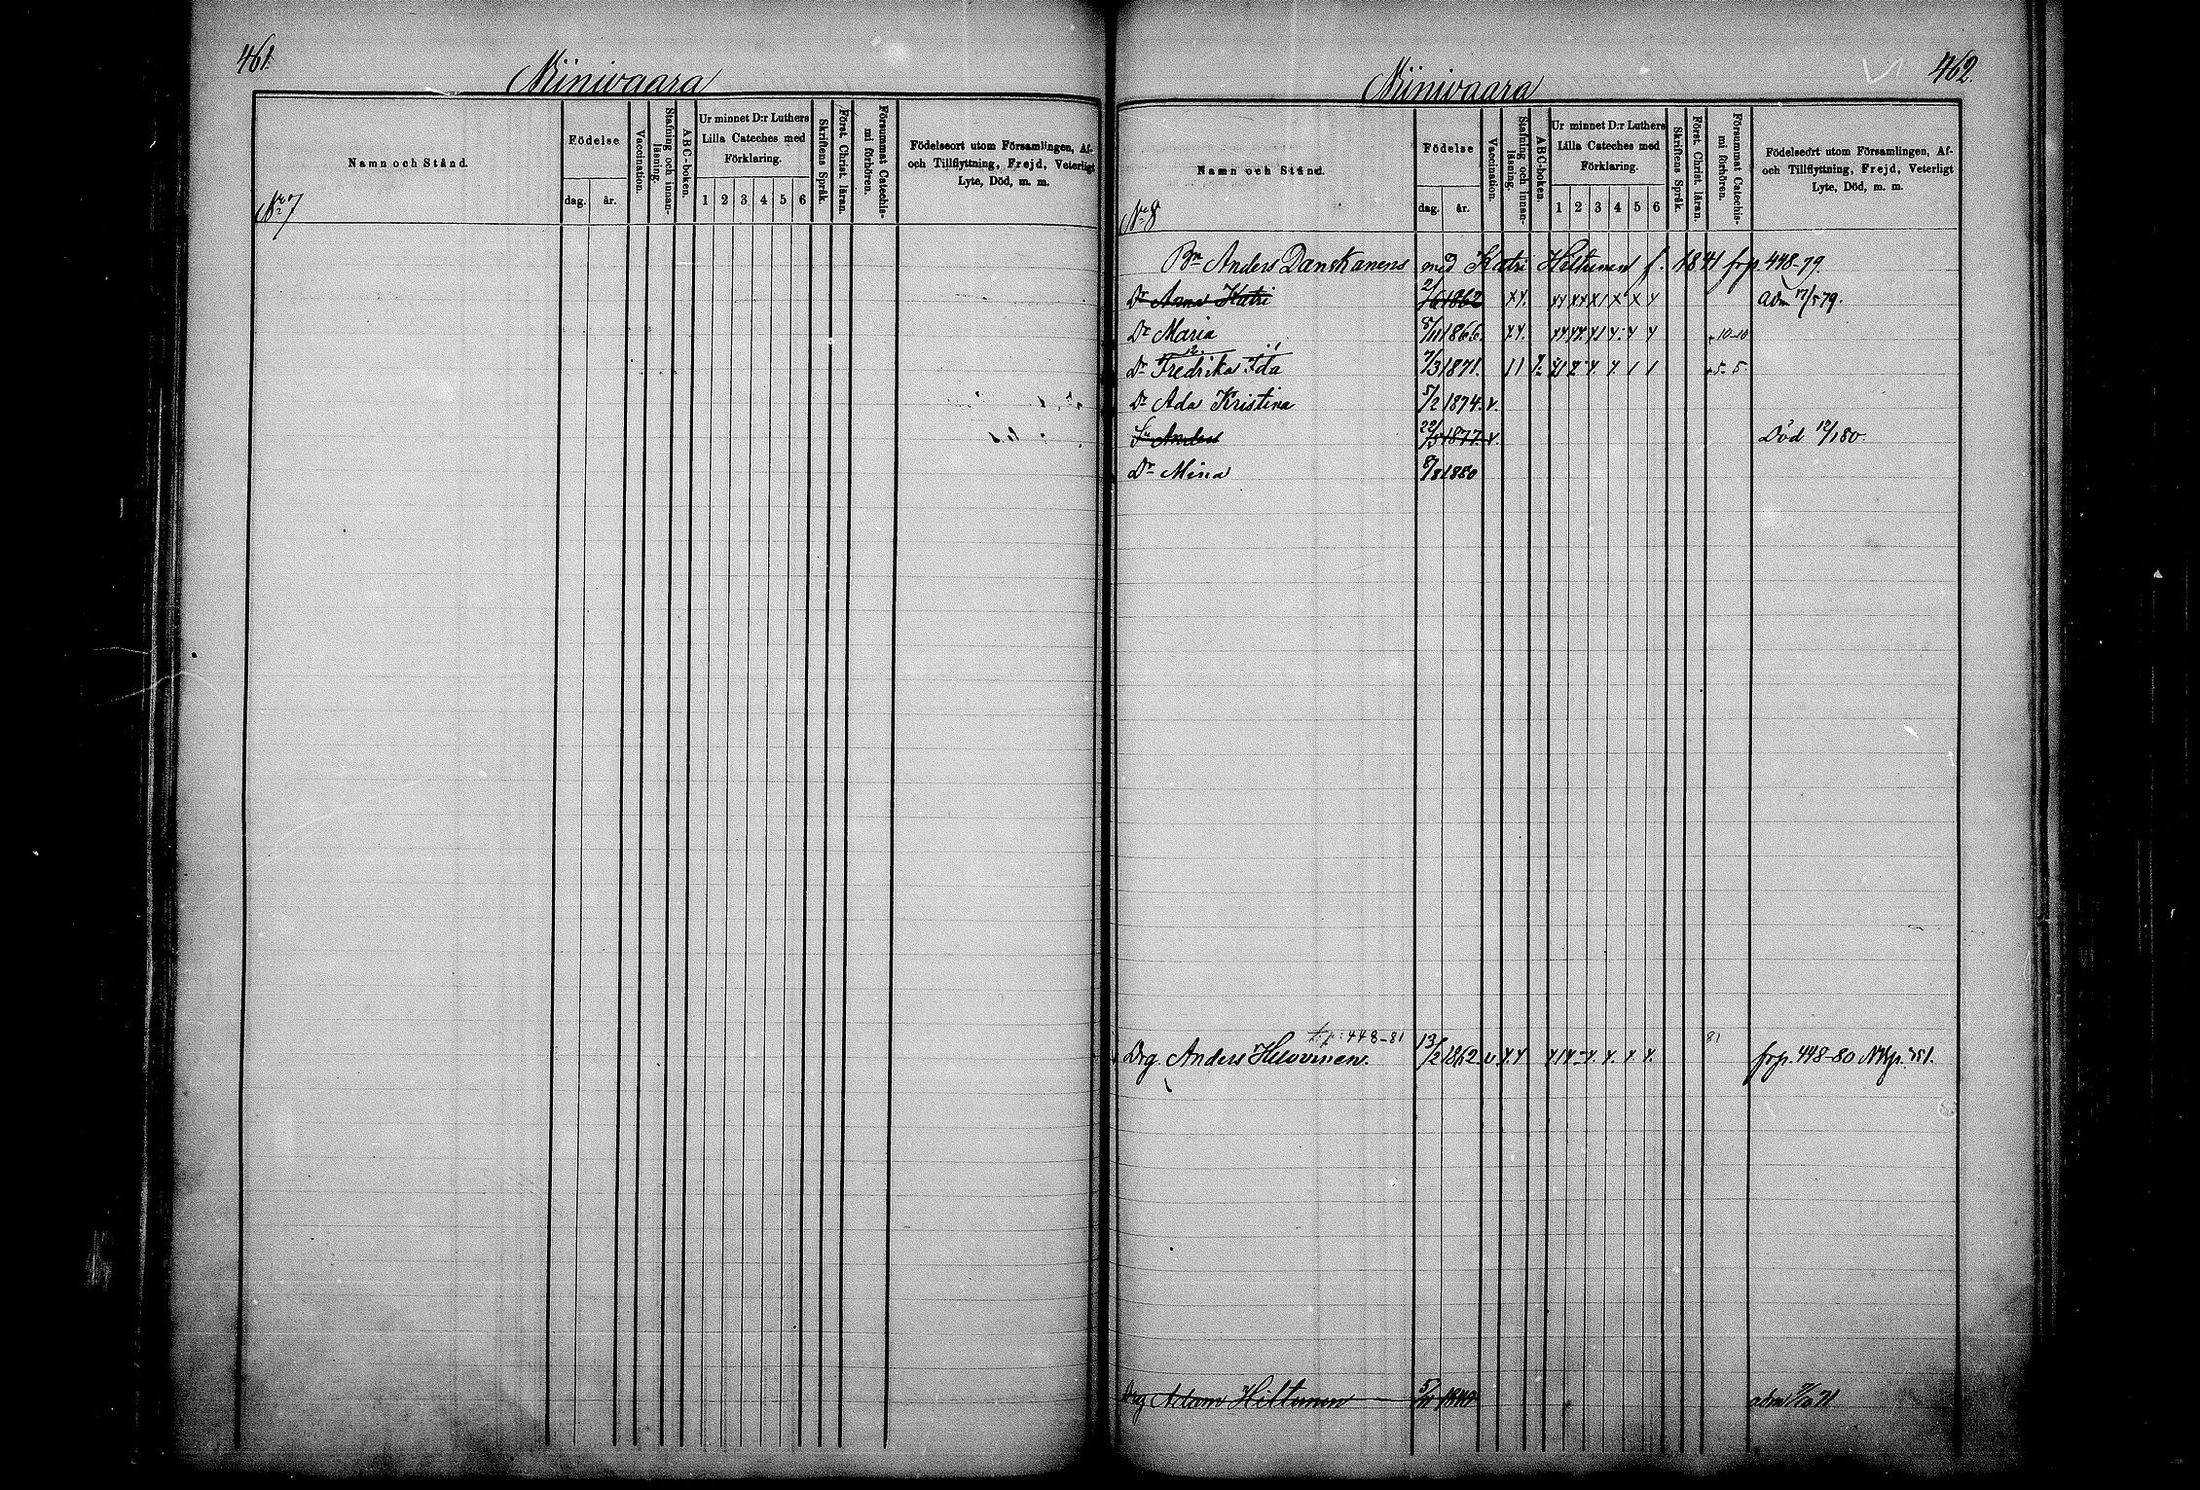 461.
Niinivaara
Namn och Stånd.
Födelse
dag.
år.
Vaccination.
Stafning och innan-
läsning.
ABC-boken.
Ur minnet D:r Luthers
Lilla Cateches med
Förklaring.
1 2 3 4 5 6
Skriftens Språk.
Först. Christ. läran.
Försummat Catechis-
mi förhören.
Födelseort utom Församlingen, Af-
och Tillflyttning, Frejd, Veterligt
Lyte, Död, m. m.
No 7
462.
Niinivaara
Namn och Stånd.
Födelse
dag.
år.
Vaccination.
Stafning och innan-
läsning.
ABC-boken.
Ur minnet D:r Luthers
Lilla Cateches med
Förklaring.
1 2 3 4 5 6
Skriftens Språk.
Först. Christ. läran.
Försummat Catechis-
mi förhören.
Födelseort utom Församlingen, Af-
och Tillflyttning, Frejd, Veterligt
Lyte, Död, m. m.
No 8
Bn Anders Danskanens med Katri Hiltunen f. 1841 frp. 448-79.
Dr Anna Katri 2/6 1862 adm 17/5 79.
Dr Maria 8/11 1866. 10-10
Dr Fredrika Ida 7/3 1871. 5-5
Dr Ada Kristina 5/2 1874. v.
Sn Anders 22/5 1877. v. Död 12/1 80.
Dr Mina 8/8 1880
t.p. 448-81
Drg. Anders Huovinen. 13/2 1862 v 81 frp. 448-80
Drg Adam Hiltunen 5/11 1840 adm 71